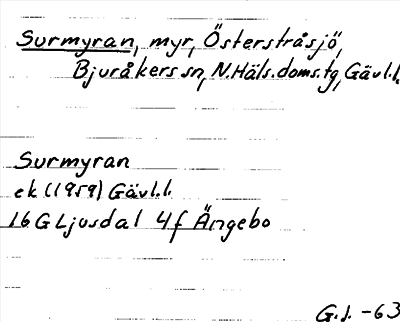 Surmyran, myr, Österstråsjö,
Bjuråkers sn, N. Häls. doms. tg, Gävl. l.
Surmyran
ek (1959) Gävl. l.
16 G Ljusdal 4 f Ängebo
G. J. -63